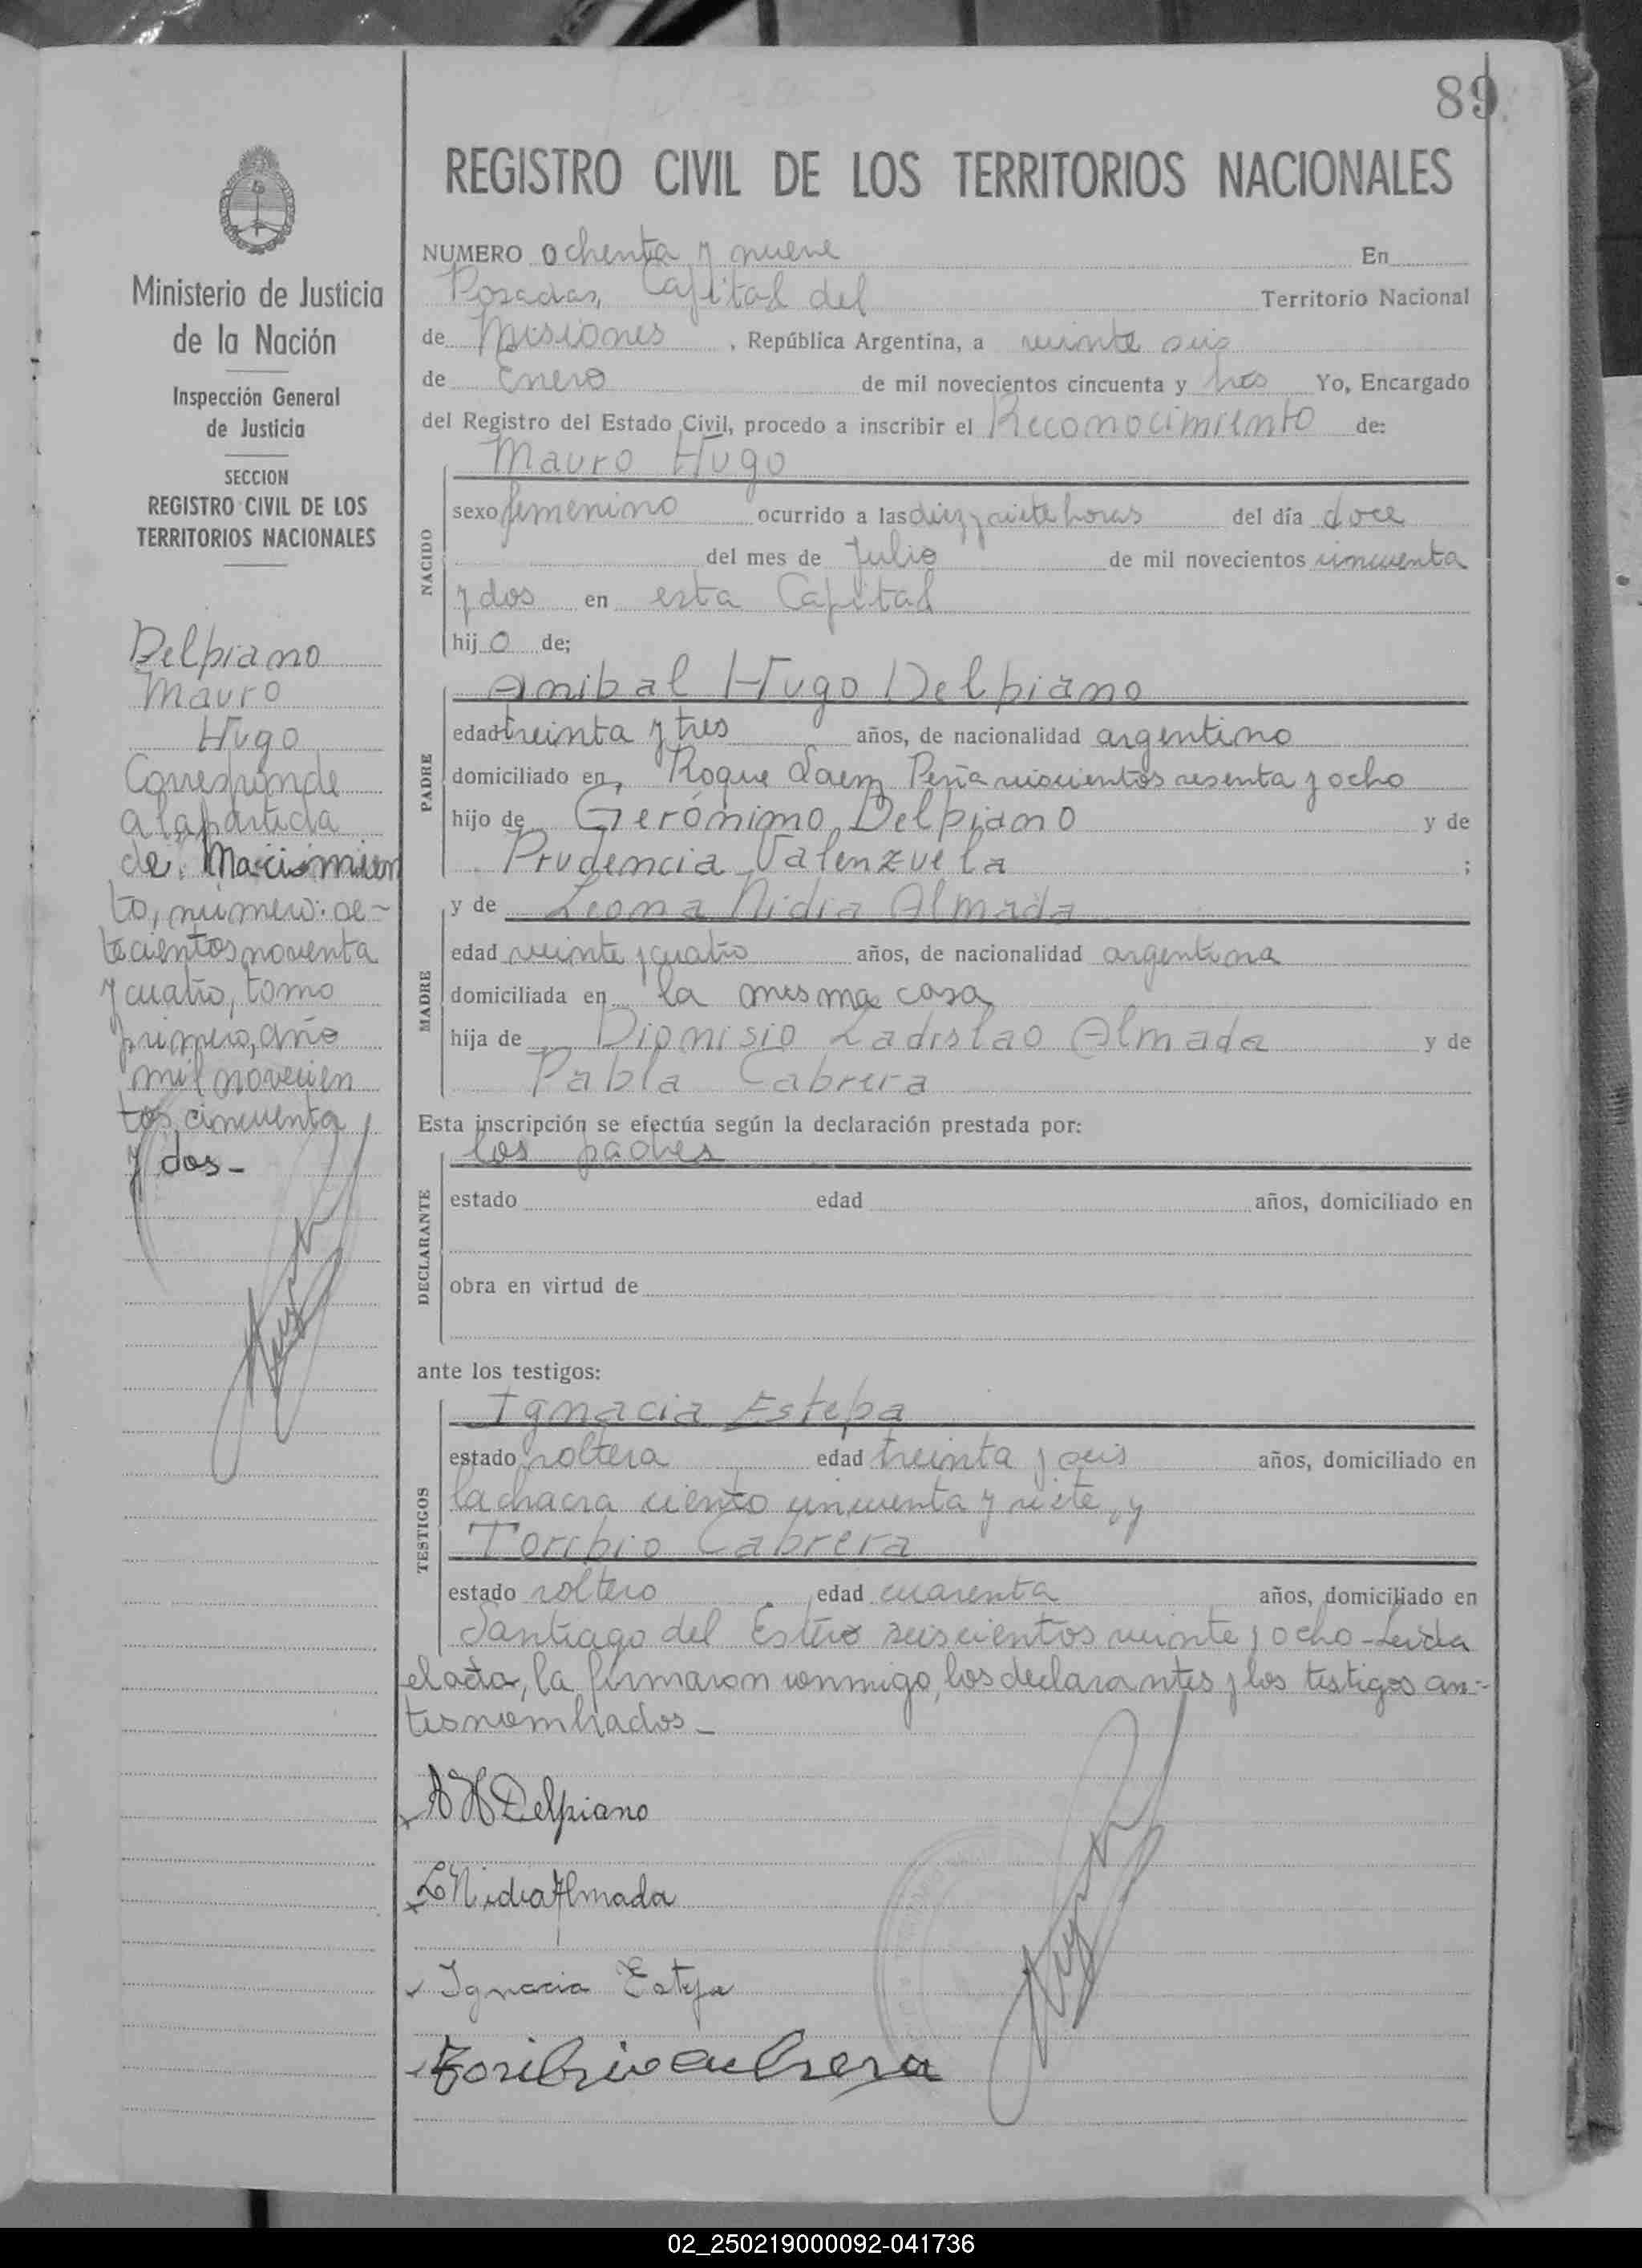 89
REGISTRO CIVIL DE LOS TERRITORIOS NACIONALES
Ministerio de Justicia
de la Nación
Inspección General
de Justicia
SECCION
REGISTRO CIVIL DE LOS
TERRITORIOS NACIONALES
Delpiano
Mauro
Hugo
Corresponde
a la partida
de Nacimien
to, número: se-
tecientos noventa
y cuatro, tomo
primero, año
mil novecien
tos cincuenta
y dos-
NUMERO ochenta y nueve En
Posadas, Capital del Territorio Nacional
de Misiones, República Argentina, a veinte seis
de Enero de mil novecientos cincuenta y tres Yo, Encargado
del Registro del Estado Civil, procedo a inscribir el Reconocimiento de:
Mauro Hugo
NACIDO
sexo femenino ocurrido a las diez y siete horas del día doce
del mes de Julio de mil novecientos cincuenta
y dos en esta Capital
hijo de;
Anibal Hugo Delpiano
PADRE
edad treinta y tres años, de nacionalidad argentino
domiciliado en Roque Saenz Peña seiscientos sesenta y ocho
hijo de Gerónimo Delpiano y de
Prudencia Valenzuela ;
y de Leona Nidia Almada
MADRE
edad veinte y cuatro años, de nacionalidad argentina
domiciliada en la misma casa
hija de Dionisio Ladislao Almada y de
Pabla Cabrera
Esta inscripción se efectúa según la declaración prestada por:
los padres
DECLARANTE
estado edad años, domiciliado en
obra en virtud de
ante los testigos:
Ignacia Estepa
TESTIGOS
estado soltera edad treinta y seis años, domiciliado en
la chacra ciento cincuenta y siete, y
Toribio Cabrera
estado soltero edad cuarenta años, domiciliado en
Santiago del Estero seiscientos veinte y ocho - Leida
el acta, la firmaron conmigo, los declarantes y los testigos an-
tes nombrados-
A H Delpiano
L Nidia Almada
Ignacia Estepa
Toribio Cabrera
02_250219000092-041736